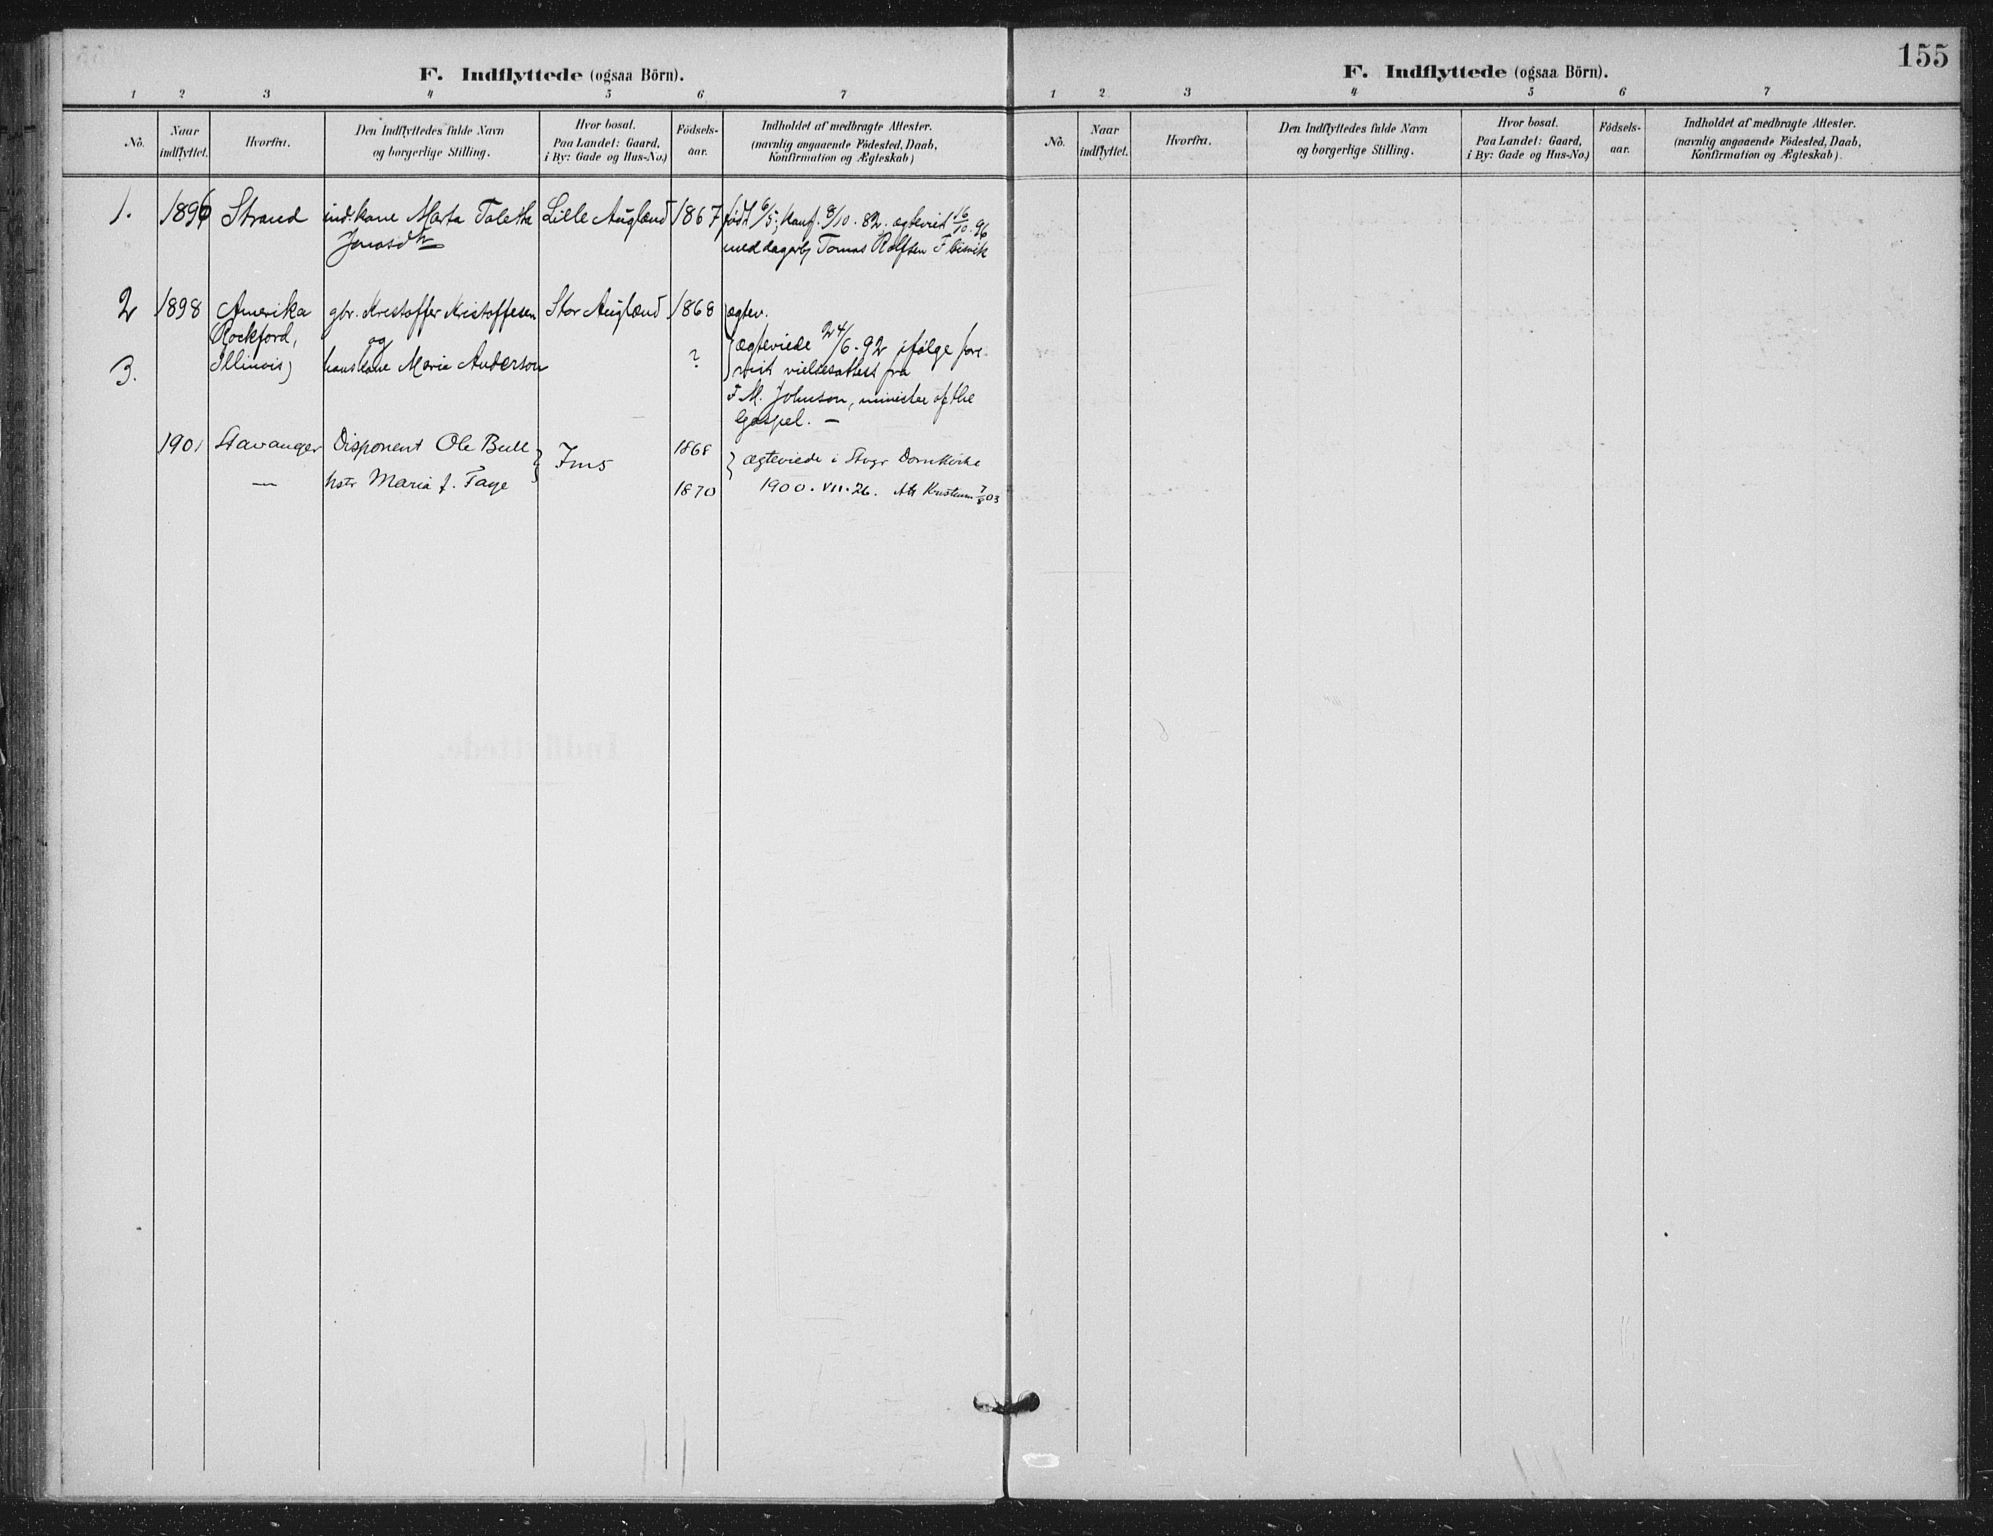 155
F. Indflyttede (ogsaa Börn).
1 2 3 4 5 6 7
No.
Naar
indflyttet.
Hvorfra.
Den Indflyttedes fulde Navn
og borgerlige Stilling.
Hvor bosat.
Paa Landet: Gaard,
i By: Gade og Hus-No.)
Födsels-
aar.
Indholdet af medbragte Attester.
(navnlig angaaende Födested, Daab,
Konfirmation og Ægteskab)
1. 1896 Strand ind. kone Marta Taletha Lille Auglænd 1867 født 6/5; konf. 8/10. 82. ægteviet 16/10. 96
Jonasdtr med dagarb Tomas Rolfsen
2 1898 Amerika gbr. Kristoffer Kristoffersen Stor Auglænd 1868 ægtev.
Rockford, og ægteviede 24/6. 92 ifølge fore-
3. Illinois) hans kone Maria Anderson ? vist vielsesattest fra
F M. Johnson, minister of the
Gospel. —
1901 Stavanger Disponent Ole Bull Ims 1868 ægteviede i Stvgr Domkirke
— hstr Maria f. Faye 1870 1900. VII. 26. Att 7/8 03
F. Indflyttede (ogsaa Börn).
1 2 3 4 5 6 7
No.
Naar
indflyttet.
Hvorfra.
Den Indflyttedes fulde Navn
og borgerlige Stilling.
Hvor bosat.
Paa Landet: Gaard,
i By: Gade og Hus-No.)
Födsels-
aar.
Indholdet af medbragte Attester.
(navnlig angaaende Födested, Daab,
Konfirmation og Ægteskab).